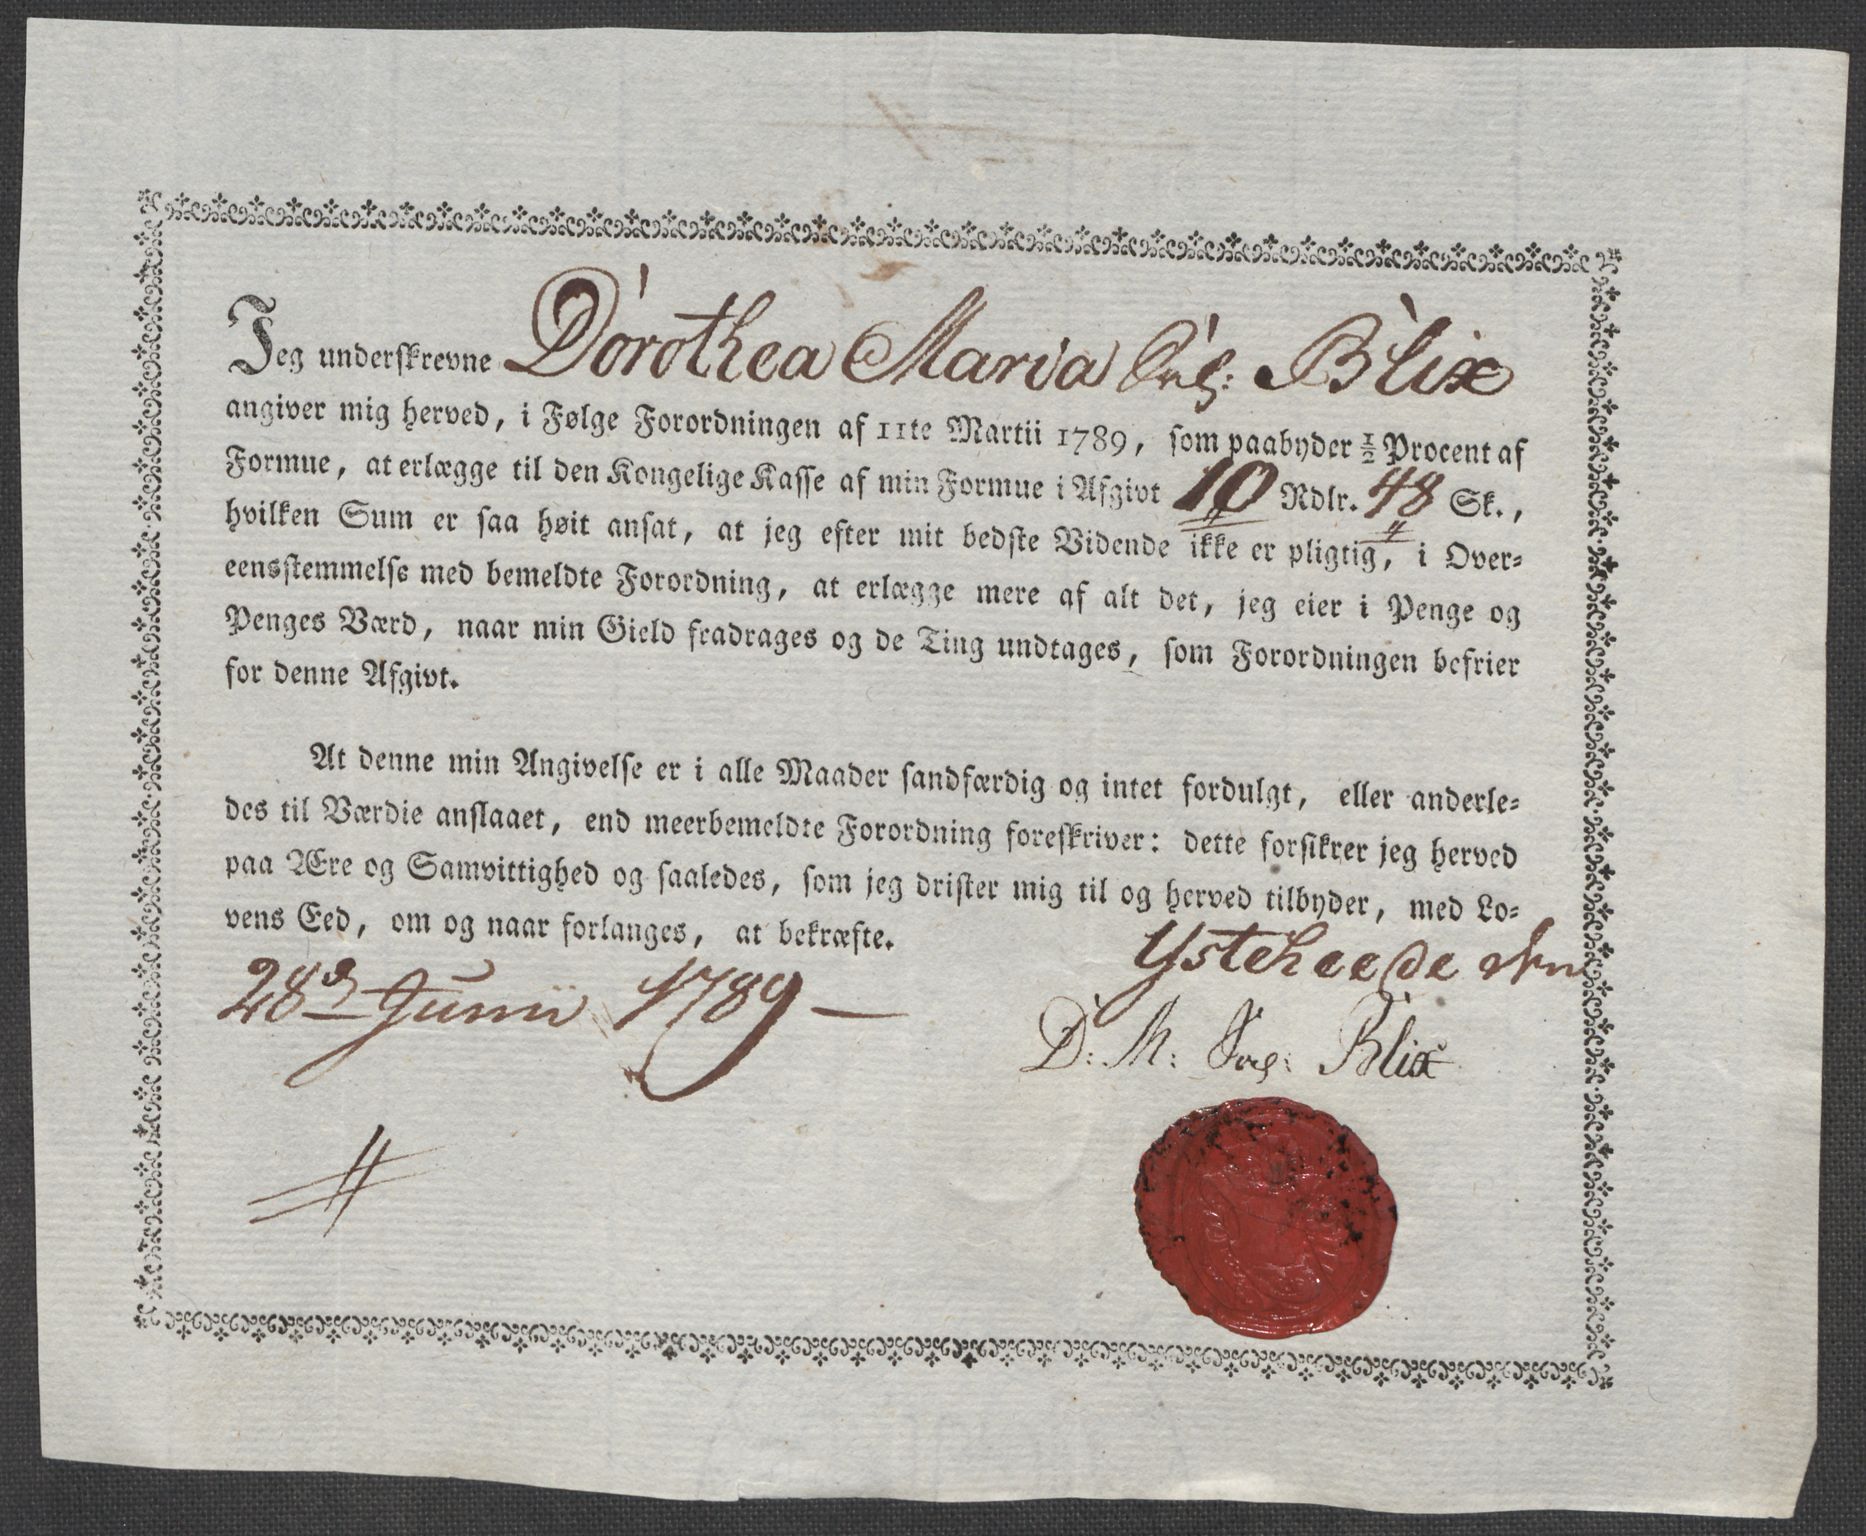 Jeg underskrevne Dorothea Maria Sal: Blix
angiver mig herved, i Følge Forordningen af 11te Martii 1789, som paabyder ½ Procent af
Formue, at erlægge til den Kongelige Kasse af min Formue i Afgivt 10 Rdlr. 48 Sk.,
hvilken Sum er saa høit ansat, at jeg efter mit bedste Vidende ikke er pligtig, i Over-
eensstemmelse med bemeldte Forordning, at erlægge mere af alt det, jeg eier i Penge og
Penges Værd, naar min Gield fradrages og de Ting undtages, som Forordningen befrier
for denne Afgivt.
At denne min Angivelse er i alle Maader sandfærdig og intet fordulgt, eller anderle-
des til Værdie anslaaet, end meerbemeldte Forordning foreskriver: dette forsikrer jeg herved
paa Ære og Samvittighed og saaledes, som jeg drister mig til og herved tilbyder, med Lo-
vens Eed, om og naar forlanges, at bekræfte.
Ystehaede den
28d Junii 1789
D: M: Sal: Blix